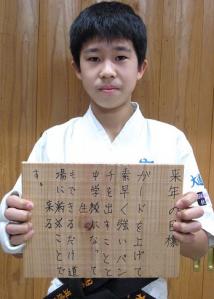 来年の目標
ガードを上げて
素早く強いパン
チを出すことと
中学生になって
もできるだけ道
場に来ることで
す。